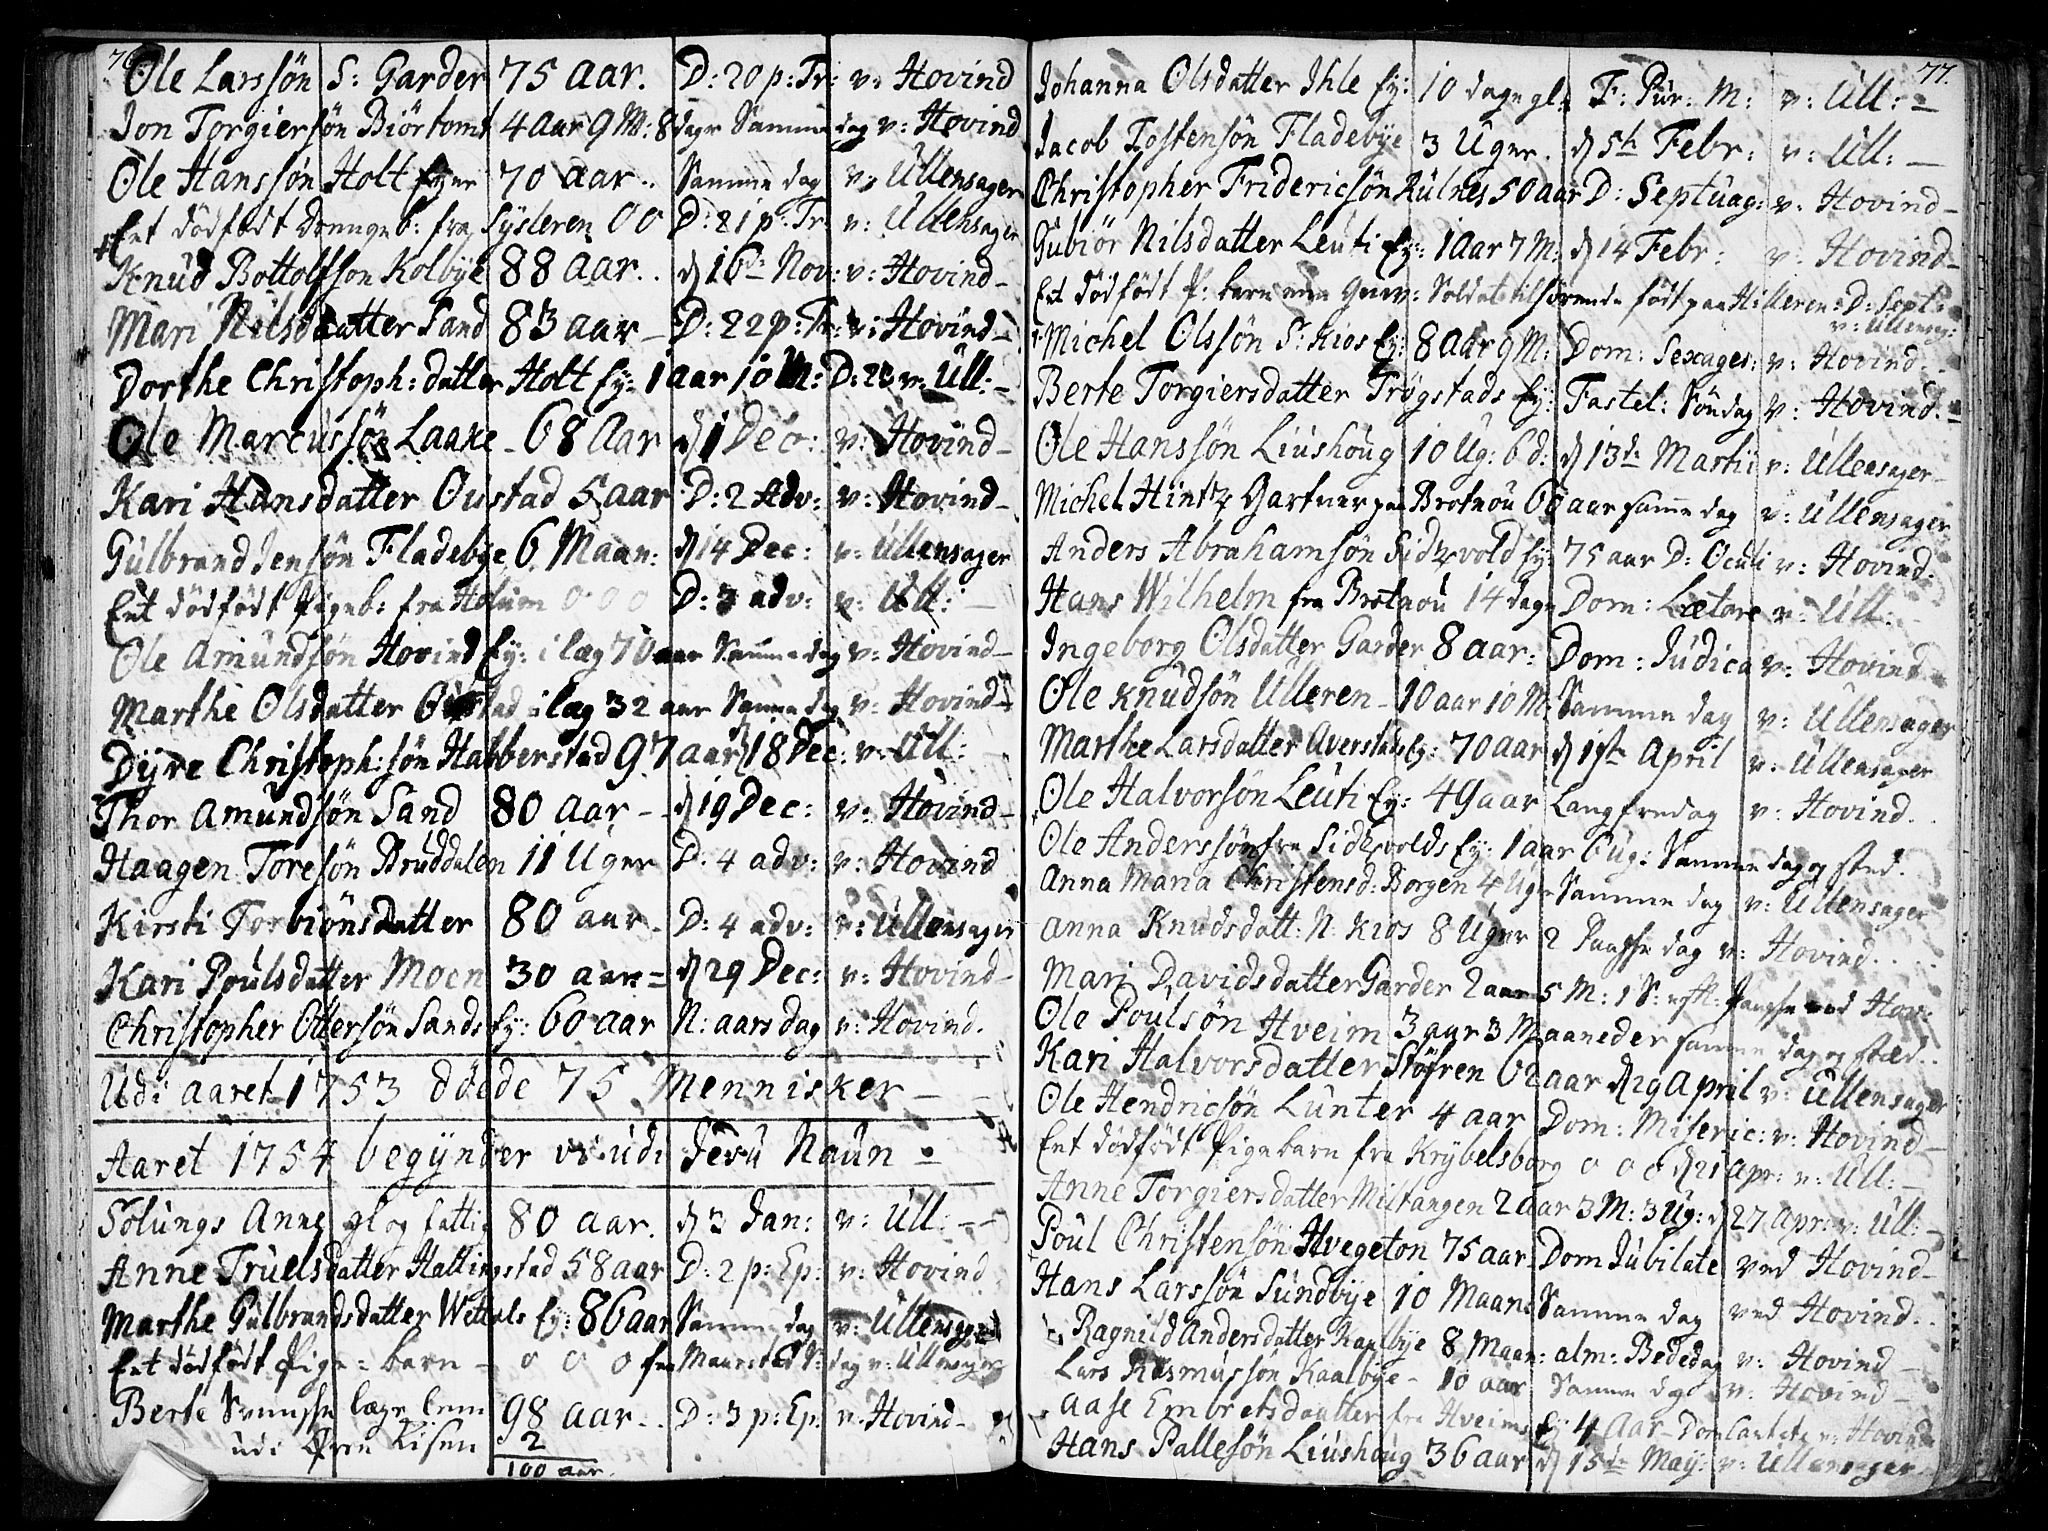 76
Ole Larssøn S: Garder 75 aar. D: 20 p: Tr: v: Hovind
Jon Torgiersøn Biørtomt 4 aar 9 M: 8 dage Samme dag v: Hovind
Ole Hanssøn Holt Ey: 70 aar.. Samme dag v: Ullensager
Eet dödfødt Drenge b: fra Sysleren 0 0 D: 21 p: Tr. v: Ullensager
Knud Bottolfsøn Kolbye 88 aar.. d 16de Nov: v: Hovind –
Mari Nilsdatter Sand 83 aar – D: 22 p: Tr: v: Hovind –
Dorthe Christoph: datter Holt Ey: 1 aar 10 M: D: v: Ull: –
Ole Marcussøn Laake – 68 Aar d 1 Dec: v: Hovind –
Kari Hansdatter Oustad 5 aar D: 2 Adv: v: Hovind –
Gulbrand Jensøn Fladebye 6 Maan: d 14 Dec: v: Ullensager
Eet dödfödt Pigeb: fra Holum 0 0 0 D: 3 adv: v: Ull: –
Ole Amundsøn Hovind Ey: i læg 70 aar Samme dag v: Hovind –
Marthe Olsdatter Oustad i læg 32 aar Samme dag v: Hovind –
Dyre Christoph: søn Habberstad 97 aar d 18 Dec: v: Ull:
Thor Amundsøn Sand 80 aar – d 19 Dec: v: Hovind –
Haagen Toresøn Bruddalen 11 Uger D: 4 adv: v: Hovind
Kirsti Torbiønsdatter 80 aar. D: 4 adv: v: Ullensager
Kari Poulsdatter Moen 30 aar = d 29 Dec: v: Hovind –
Christopher Ottersøn Sands Ey: 60 aar N: aarsdag v: Hovind.
Udi aaret 1753 döede 75 Mennisker – –
Aaret 1754 begynder vi udi Jesu Naun –
Solungs Anne gl og fattig 80 aar. d 3 Jan: v: Ull: – –
Anne Truelsdatter Hallingstad 58 aar D: 2 p: Ep: v: Hovind
Marthe Gulbrandsdatter Ey: 86 aar Samme dag v: Ullensager
Eet dödfödt Pige = barn – 0 0 0 fra S: dag v: Ullensager
Berte Svensche læge lem 98 aar.. D: 3 p: Ep: v: Hovind –
udi Øvre Risen 2
100 aar.
77.
Johanna Olsdatter Ihle Ey: 10 dage gl: F: Pur: M: v: Ull: –
Jacob Tostensøn Fladebye 3 Uger. d 5te Febr: v: Ull: –
Christopher Fridericsøn Rulnes 50 aar D: Septuag: v: Hovind –
Gubiør Nilsdatter Leuti Ey: 1 aar 7 M: d 14 Febr: v: Hovind –
Eet dödfödt P: barn Soldat tilhørende födt paa Hilleren: D: Sept:
v: Ullensag:
Michel Olssøn S: Kios Ey: 8 aar 9 M: Dom: Sexages: v: Hovind..
Berte Torgiersdatter Trøgstads Ey: Fastel: Søndag v: Hovind. –
Ole Hanssøn Liushoug 10 Ug: 6 d: d 13de Martij v: Ullensager –
Michel Hintz Gartner paa Brotnou 60 aar samme dag v: Ullensager
Anders Abrahamsøn Sidzvold Ey: 75 aar D: Oculi v: Hovind:
Hans Wilhelm fra Brotnou 14 dage Dom: Lætare v: Ull: –
Ingeborg Olsdatter Garder 8 aar: Dom: Judica v: Hovind
Ole Knudsøn Ulleren – 10 aar 10 M: Samme dag v: Ullensager
Marthe Larsdatter Averstads Ey: 70 aar d 1ste April v: Ullensager
Ole Halvorsøn Leuti Ey: 49 aar Langfredag v: Hovind..
Ole Anderssøn fra Sidzvolds Ey: 1 aar 6 ug: Samme dag og sted.
Anna Maria Christensd: Borgen 4 Uger Samme dag v: Ullensager
Anna Knudsdatt: N: Kios 8 Uger 2 Paaske dag v: Hovind....
Mari Davidsdatter Garder 2 aar 5 M: 1 S: eft: Paaske ved Hov:
Ole Poulsøn Hveim 3 aar 3 Maaneder samme dag og sted..
Kari Halvorsdatter Støfren 62 aar d 19 April v: Ullensager
Ole Hendricsøn Lunter 4 aar Dom: Miseric: v: Hovind –
Eet dödfödt Pigebarn fra Krybelsborg 0 0 0 d 21 Apr: v: Ull: –
Anne Torgiersdatter Miltangen 2 aar 3 M: 3 Ug: d 27 Apr: v: Ull: –
Poul Christensøn Hvegeton 75 aar Dom Jubilate ved Hovind –
Hans Larssøn Sundbye 10 Maan: Samme dag ved Hovind..
Ragnild Andersdatter Kaalbye 8 Maan: alm: Bededag v: Hovind –
Lars Rasmussøn Kaalbye – 10 aar Samme dag v: Hovind –
Aase Embretsdaatter fra Hveims Ey 4 Aar – Dom Cantate v: Hovind
Hans Pallesøn Liushoug 36 aar d 15de May: v: Ullensager.